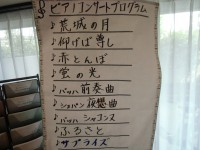 ピアノコンサートプログラム
♪荒城の月
♪仰げば尊し
♪赤とんぼ
♪蛍の光
♪バッハ前奏曲
♪ショパン夜想曲
♪バッハ シャコンヌ
♪ふるさと
♪サプライズ